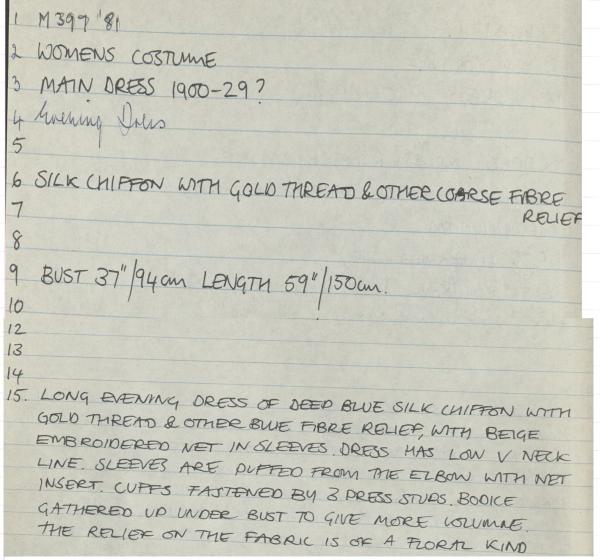 1 M397 '81
2 WOMENS COSTUME
3 MAIN DRESS 1900-29?
4 Evening Dress
5
6 SILK CHIFFON WITH GOLD THREAD & OTHER COARSE FIBRE
7 RELIEF
8
9 BUST 37"/94cm LENGTH 59"/150cm.
10
12
13
14
15. LONG EVENING DRESS OF DEED BLUE SILK CHIFFON WITH
GOLD THREAD & OTHER BLUE FIBRE RELIEF, WITH BEIGE
EMBROIDERED NET IN SLEEVES. DRESS HAS LOW V NECK
LINE. SLEEVES ARE PUFFED FROM THE ELBOW WITH NET
INSERT. CUFFS FASTENED BY 3 PRESS STUDS. BODICE
GATHERED UP UNDER BUST TO GIVE MORE VOLUMNE.
THE RELIEF ON THE FABRIC IS OF A FLORAL KIND